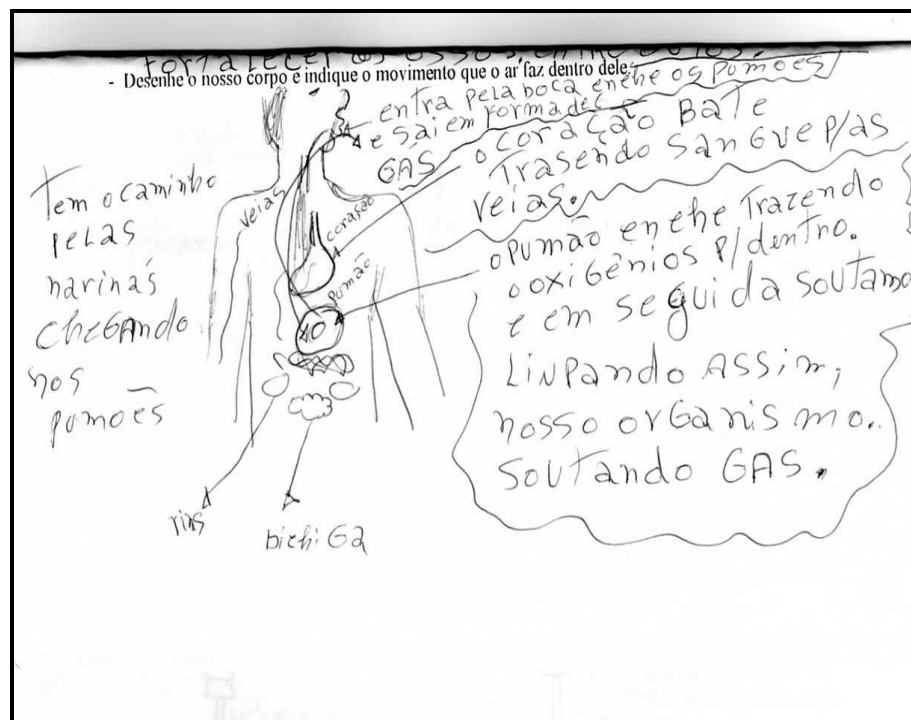 FORTALECER OS OSSOS, ENTRE OUTOS.
- Desenhe o nosso corpo e indique o movimento que o ar faz dentro dele.
entra pela boca enche os pumões
e sai em forma de
GÁS
o coração Bate
Trasendo sangue p/as
veias.
Tem o caminho
pelas
narinas
cheGAndo
nos
pumoẽs
veias
coração
pumão
o pumão enche Trazendo
o oxiGênios p/dentro.
e em seguida soutamo
LiNpando Assim,
nosso orGanismo.
soutando GAS.
rins
bichiGa